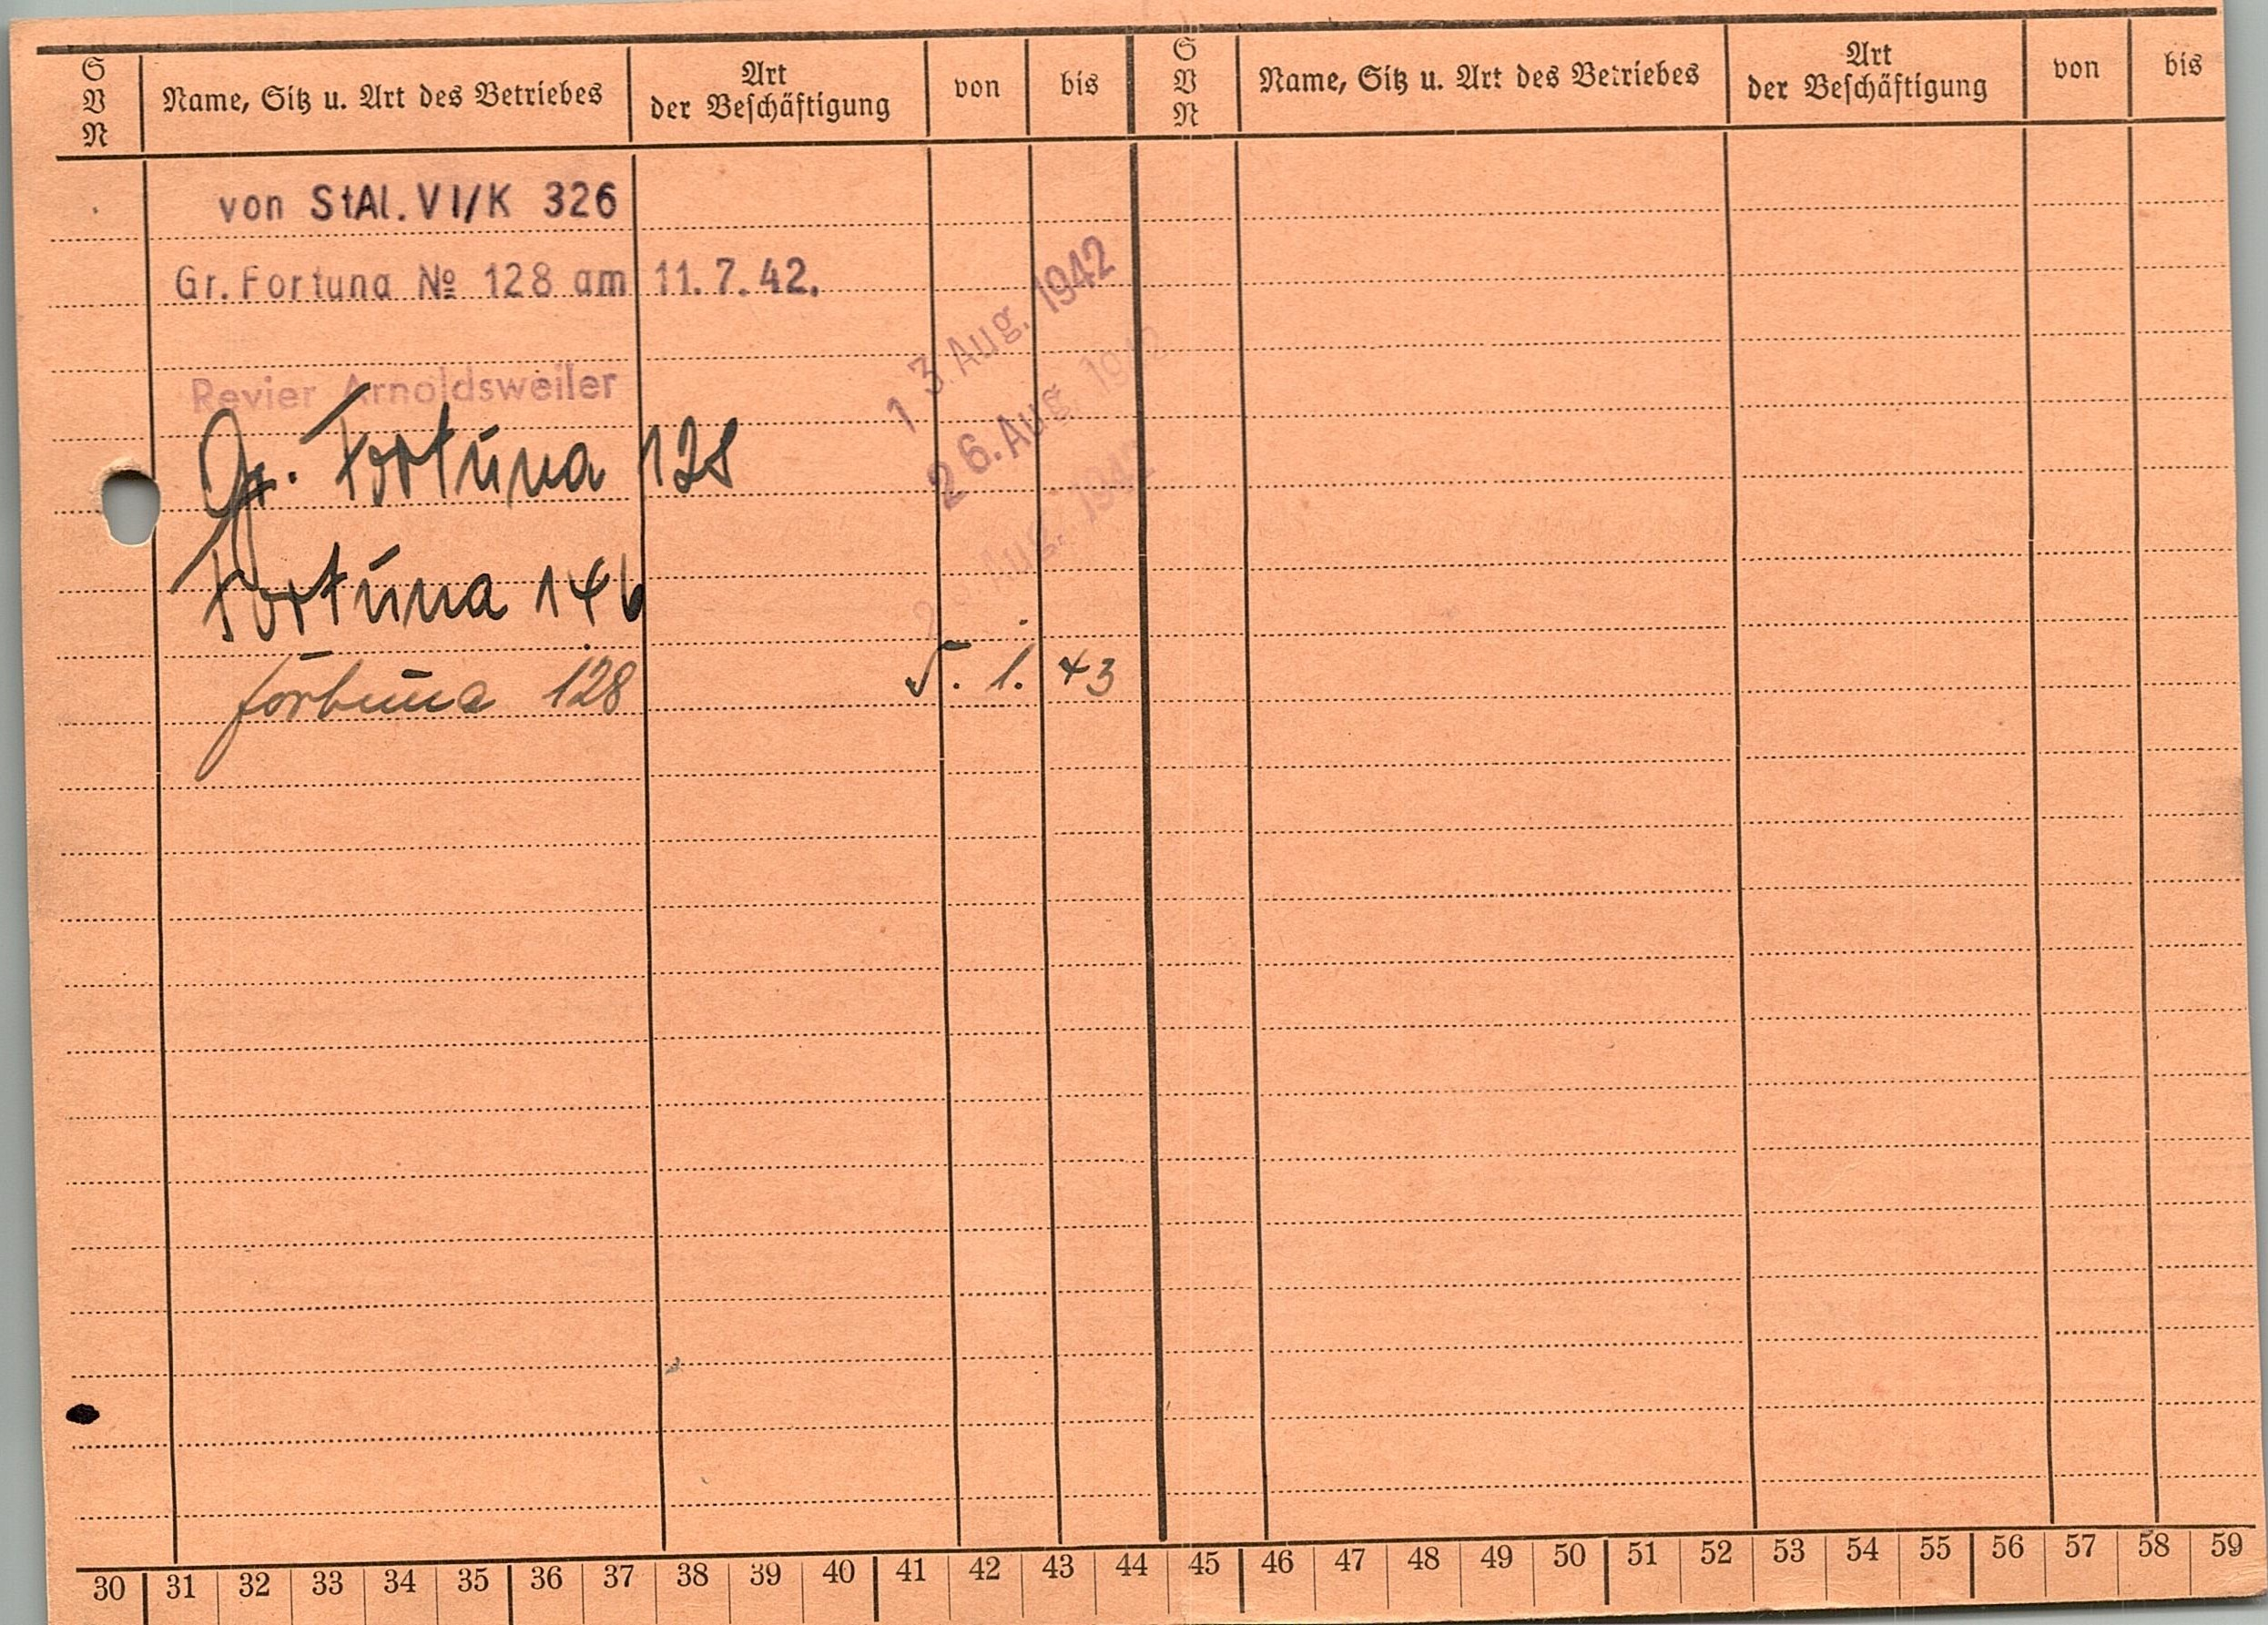 S V N Name, Sitz u. Art des Betriebes Art der Beschäftigung von bis S V N Name, Sitz u. Art des Betriebes Art der Beschäftigung von bis
von StAl. VI/K 326
Gr. Fortuna № 128 am 11.7.42.
Revier Arnoldsweiler 13. Aug. 1942
Gr. Fortuna 128 26. Aug. 1942
Aug. 1942
Fortuna 146
Fortuna 128 5. 1. 43
30 31 32 33 34 35 36 37 38 39 40 41 42 43 44 45 46 47 48 49 50 51 52 53 54 55 56 57 58 59